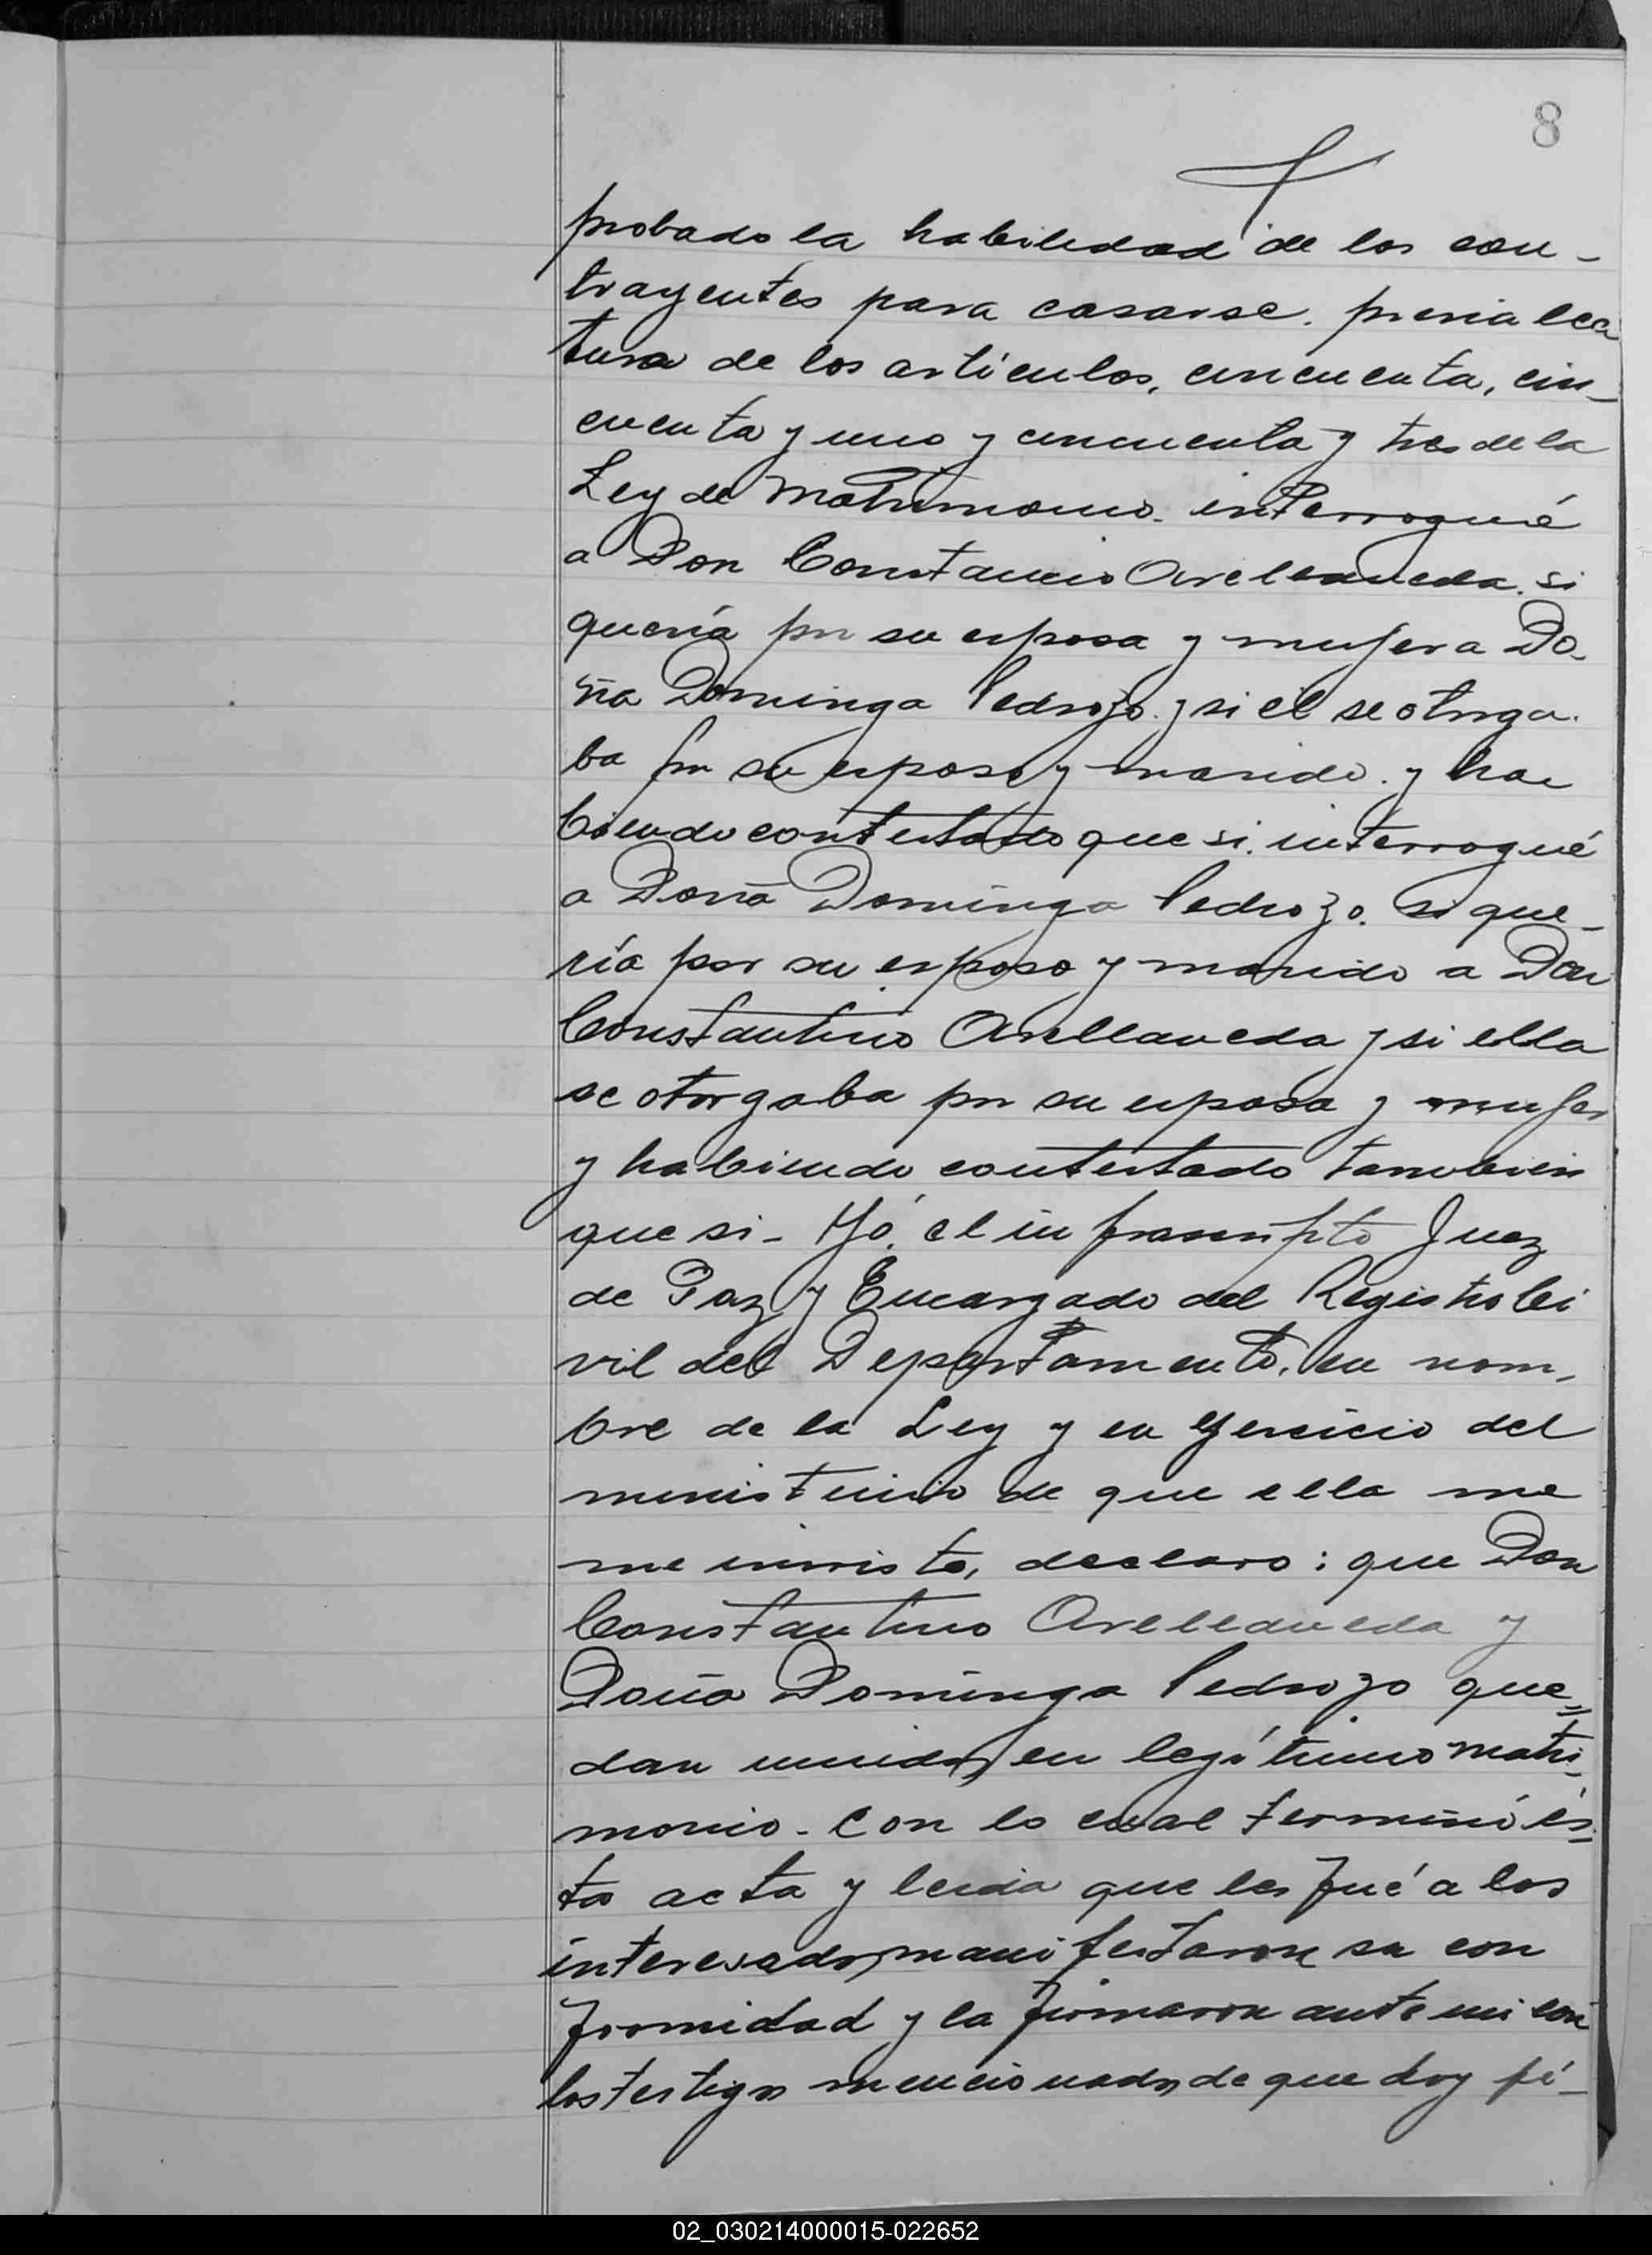 8
probado la habilidad de los con-
trayentes para casarse. previa lec
tura de los artículos, cincuenta, cin-
cuenta y uno y cincuenta y tres de la
Ley de Matrimonio. interrogué
a Don Constancio Arellaneda. si
quería por su esposa y mujer a Do-
ña Dominga Pedrozo. y si él se otorga-
ba por su esposo y marido. y ha
biendo contestado que si. interrogué
a Doña Dominga Pedrozo. si que-
ría por su esposo y marido a Don
Constantino Arellaneda y si ella
se otorgaba por su esposa y mujer
y habiendo contestado tambien
que si- Yó, el infrascripto Juez
de Paz y Encargado del Registro Ci
vil del Departamento, en nom-
bre de la Ley y en ejercicio del
ministerio de que ella me
me inviste, declaro: que Don
Constantino Arellaneda y
Doña Dominga Pedrozo que-
dan unidos en legítimo matri-
monio- Con lo cual terminó és-
ta acta y leida que les fué a los
interesados, manifestaron su con
formidad y la firmaron ante mi con
los testigos mencionados de que doy fé-
02_030214000015-022652